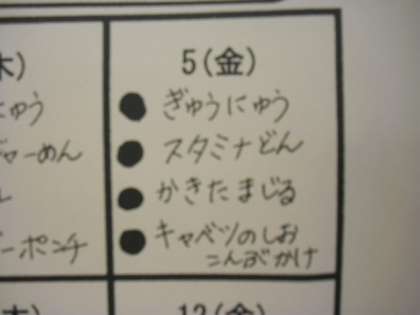 木)
5(金)
にゅう
● ぎゅうにゅう
● スタミナどん
ーめん
● かきたまじる
● キャベツのしお
こんぶかけ
ーポンチ
12(金)